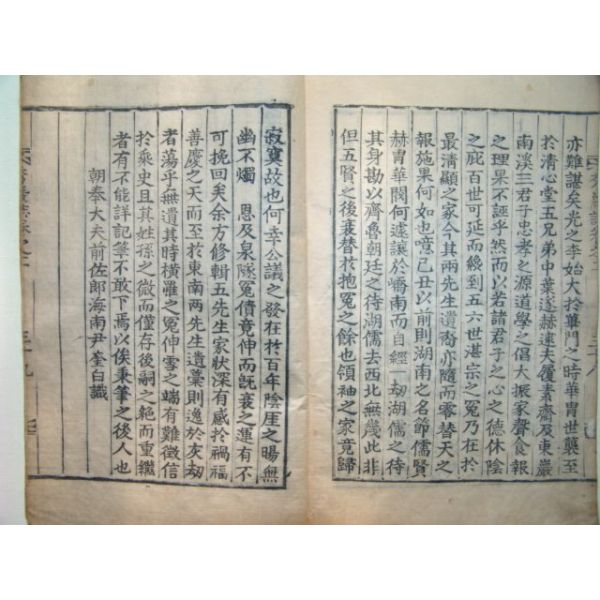 亦難諶矣光之李始大於蓽門之時華胄世襲至
於淸心堂五兄弟中葉逐赫逮夫履素齋及東巖
南溪三君子忠孝之源道學之倡大振家聲食報
之理果不誣乎然而以若諸君子之心之德休陰
之庇百世可延而纔到五六世湛宗之冤乃在於
最淸顯之家今其兩先生遺裔亦隨而零替天之
報施果何如也噫己丑以前則湖南之名節儒賢
赫胄華閥何遽讓於嶠南而自經一劫湖儒之待
其身勘以齊魯朝廷之待湖儒去西北無幾此非
但五賢之後衰替於抱冤之餘也領袖之家竟歸
寂寞故也何幸公議之發在於百年陰厓之暘無
幽不燭 恩及泉隧冤債竟伸而旣衰之運有不
可挽回矣余方修輯五先生家狀深有感於禍福
善慶之天而至於東南兩先生遺藁則逸於灰劫
者蕩乎無遺其時橫罹之冤伸雪之端有難徵信
於乘史且其姓孫之微而僅存後嗣之絶而重繼
者有不能詳記筆不敢下焉以俟秉筆之後人也
朝奉大夫前佐郎海南尹奎白識